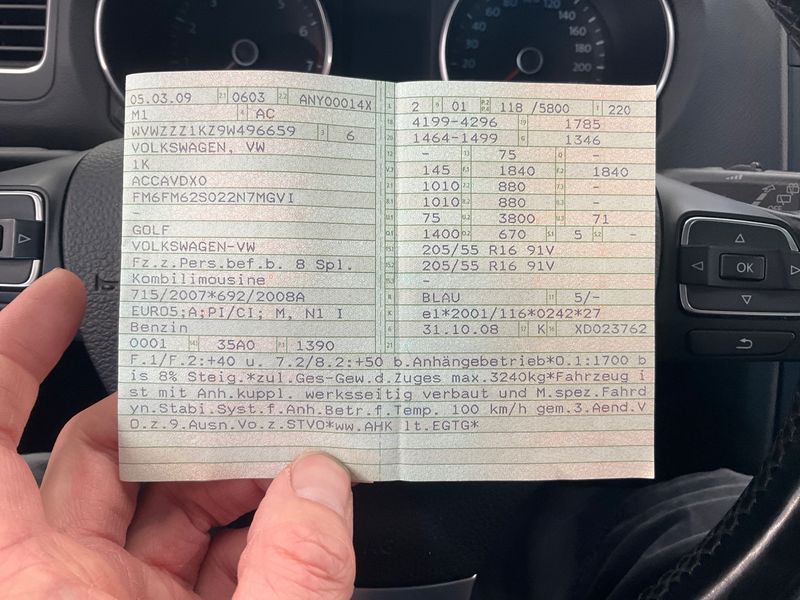 05.03.09 2.1 0603 2.2 ANY00014X
M1 4 AC
WVWZZZ1KZ9W496659 3 6
VOLKSWAGEN, VW
1K
ACCAVDX0
FM6FM62S022N7MGVI
-
GOLF
VOLKSWAGEN-VW
Fz.z.Pers.bef.b. 8 Spl.
Kombilimousine
715/2007*692/2008A
EURO5;A;PI/CI; M, N1 I
Benzin
0001 14.1 35A0 P.1 1390
L 2 9 01 P.2 P.4 118 /5800 T 220
18 4199-4296 19 1785
20 1464-1499 G 1346
12 - 13 75 Q -
V.7 145 F.1 1840 F.2 1840
7.1 1010 7.2 880 7.3 -
8.1 1010 8.2 880 8.3 -
U.1 75 U.2 3800 U.3 71
O.1 1400 O.2 670 S.1 5 S.2 -
15.1 205/55 R16 91V
15.2 205/55 R16 91V
15.3 -
R BLAU 11 5/-
K e1*2001/116*0242*27
6 31.10.08 17 K 16 XD023762
21
F.1/F.2:+40 u. 7.2/8.2:+50 b.Anhängebetrieb*O.1:1700 b
is 8% Steig.*zul.Ges-Gew.d.Zuges max.3240kg*Fahrzeug i
st mit Anh.kuppl. werksseitig verbaut und M.spez.Fahrd
yn.Stabi.Syst.f.Anh.Betr.f.Temp. 100 km/h gem.3.Aend.V
O.z.9.Ausn.Vo.z.STVO*ww.AHK lt.EGTG*
OK
5
6
7
20
40
60
120
140
160
180
200